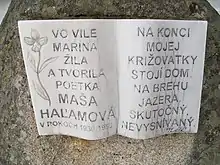 VO VILE
MARINA
ŽILA
A TVORILA
POETKA
MAŠA
HAĽAMOVÁ
V ROKOCH
NA KONCI
MOJEJ
KRIŽOVATKY
STOJÍ DOM.
NA BREHU
JAZERA.
SKUTOČNÝ,
NEVYSNÍVANÝ.